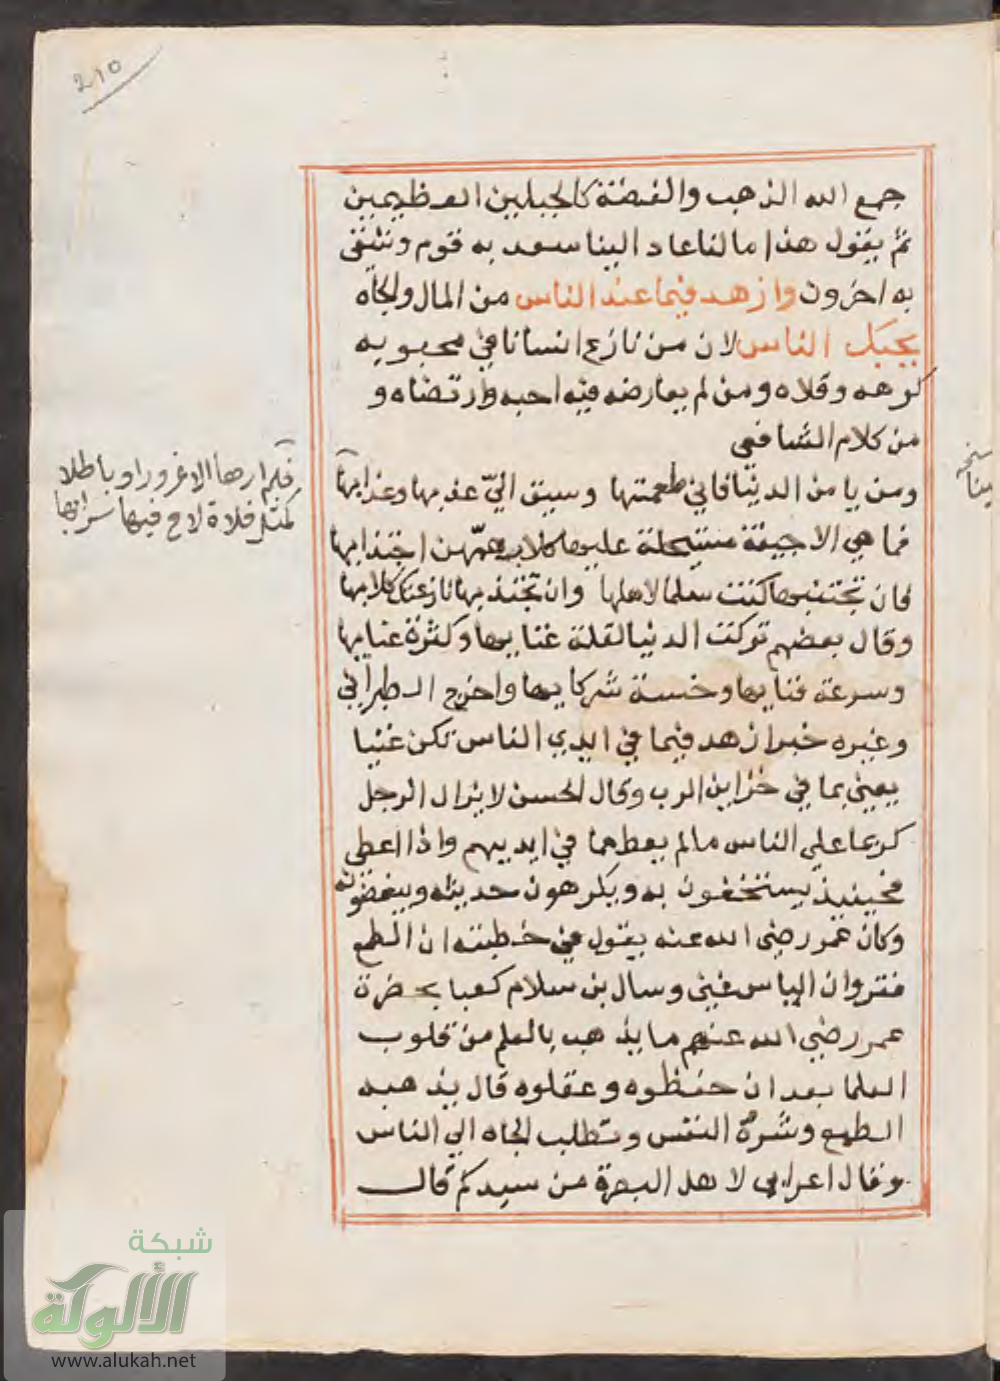 210
جمع الله الذهب والفضة كالجبلين العظيمين
ثم يقول هذا مالنا عاد الينا سعد به قوم وشقى
به اخرون وازهد فيما عند الناس من المال والجاه
يحبك الناس لان من نازع انسانا في محبوبه
كرهه وقلاه ومن لم يعارضه فيه احبه وارتضاه و
من كلام الشافعي
ومن يامن الدنيا فاني طعمتها وسيق الىّ عذبها وعذابها
فلم ارها الا غرورا وباطلا
كمثل فلاة لاح فيها سرابها
فما هي الا جيفة مستحيلة عليها كلاب همّهن اجتذابها
فان تجتنبها كنت سلما لاهلها وان تجتذبها نازعتك كلابها
وقال بعضهم تركت الدنيا لقلة غنايها وكثرة عنايها
وسرعة فنايها وخسة شركايها واخرج الطبراني
وغيره خبر ازهد فيما في ايدي الناس تكن غنيا
يعني بما في خزاين الرب وقال الحسن لا يزال الرجل
كريما على الناس مالم يعط مما في ايديهم واذا اعطى
فحينيذ يستخفون به ويكرهون حديثه ويبغضونه
وكان عمر رضي الله عنه يقول في خطبته ان الطمع
فقر وان الياس غنى وسال بن سلام كعبا بحضرة
عمر رضي الله عنهم ما يذهب بالعلم من قلوب
العلما بعد ان حفظوه وعقلوه قال يذهبه
الطمع وشره النفس وتطلب الجاه الي الناس
وقال اعرابي لاهل البصرة من سيدكم قالـ
شبكة
الألوكة
www.alukah.net